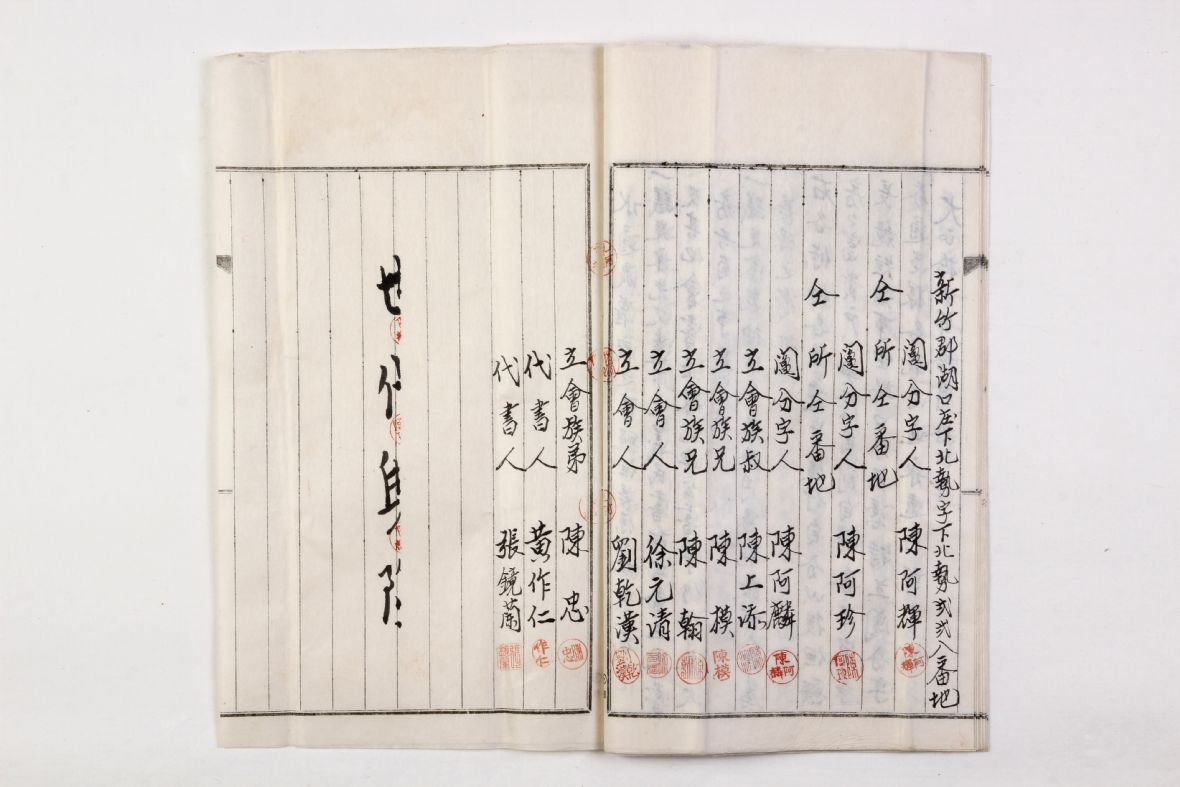 新竹郡湖口庄下北勢字下北勢弍弍八番地
鬮分字人 陳阿輝
仝所仝番地
鬮分字人 陳阿珍
仝所仝番地
鬮分字人 陳阿麟
立會族叔 陳上添
立會族兄 陳模
立會族兄 陳翰
立會人 徐元清
立會人 劉乾漢
立會族弟 陳忠
代書人 黃作仁
代書人 張鏡蘭